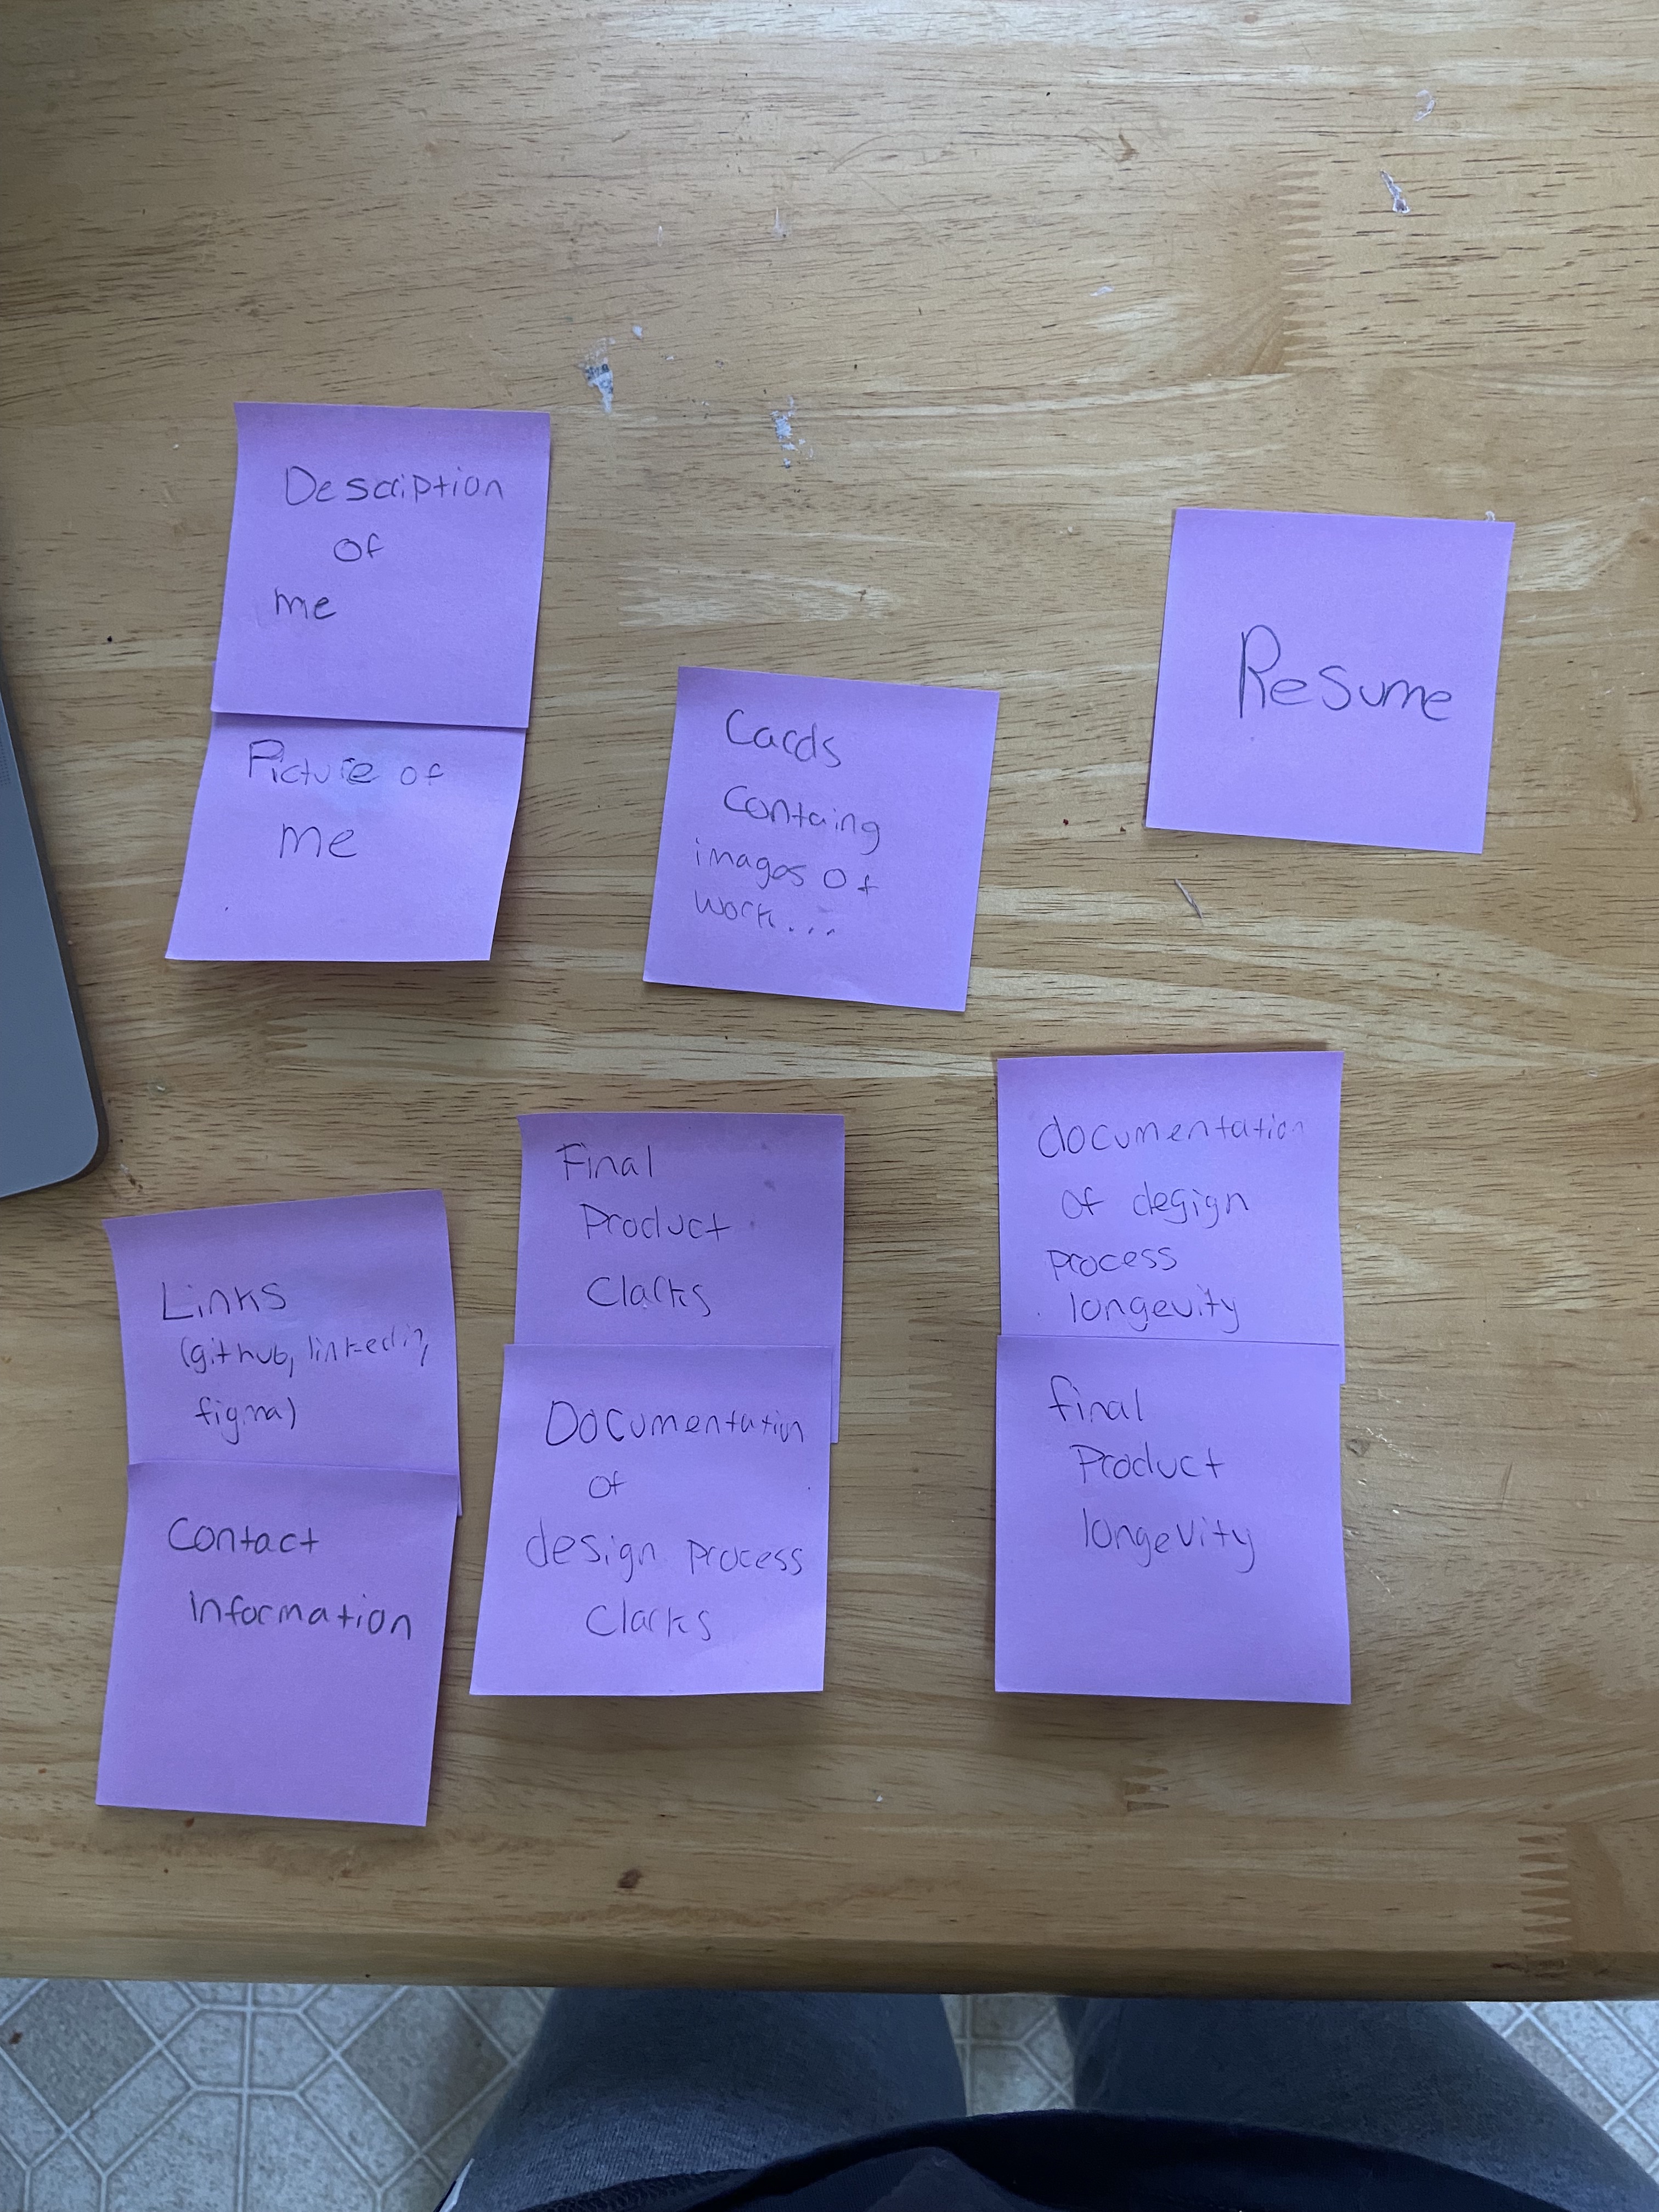 Description
of
me
Picture of
me
Cards
Containg
images of
work...
Resume
Links
(github, linkedin,
figma)
Contact
Information
Final
Product
Clarks
Documentation
of
design process
Clarks
documentation
of design
process
longevity
final
Product
longevity